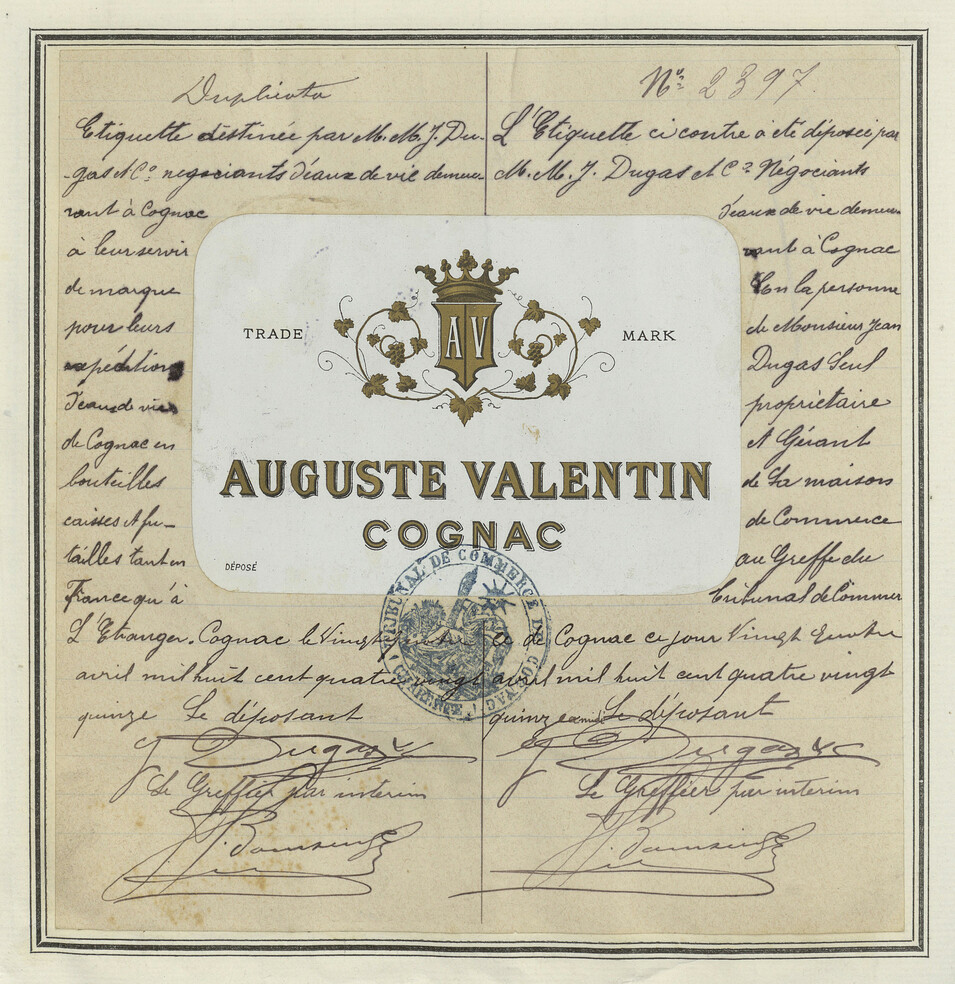 Duplicata
Etiquette déstinée par M.M. J. Du-
-gas & Cº negociants d'eaux de vie demeu-
rant à Cognac
à leur servir
de marque
pour leurs
expéditions
d'eaux de vie
de Cognac en
bouteilles
caisses & fu-
tailles tant en
France qu'à
L'Etranger. Cognac le Vingt quatre
avril mil huit cent quatre vingt
quinze Le déposant
J Dugas & C
Le Greffier par interim
Nº 2397.
L'Etiquette ci contre a été déposée par
M.M. J. Dugas & Cº Négociants
d'eaux de vie demeu-
rant à Cognac
En la personne
de Monsieur Jean
Dugas Seul
propriétaire
et Gérant
de La maison
de Commerce
au Greffe du
Tribunal de Commer
ce de Cognac ce jour Vingt Quatre
avril mil huit cent quatre vingt
quinze Le déposant
J Dugas & C
Le Greffier par interim
TRADE MARK
AV
AUGUSTE VALENTIN
COGNAC
DÉPOSÉ
TRIBUNAL DE COMMERCE DE COGNAC